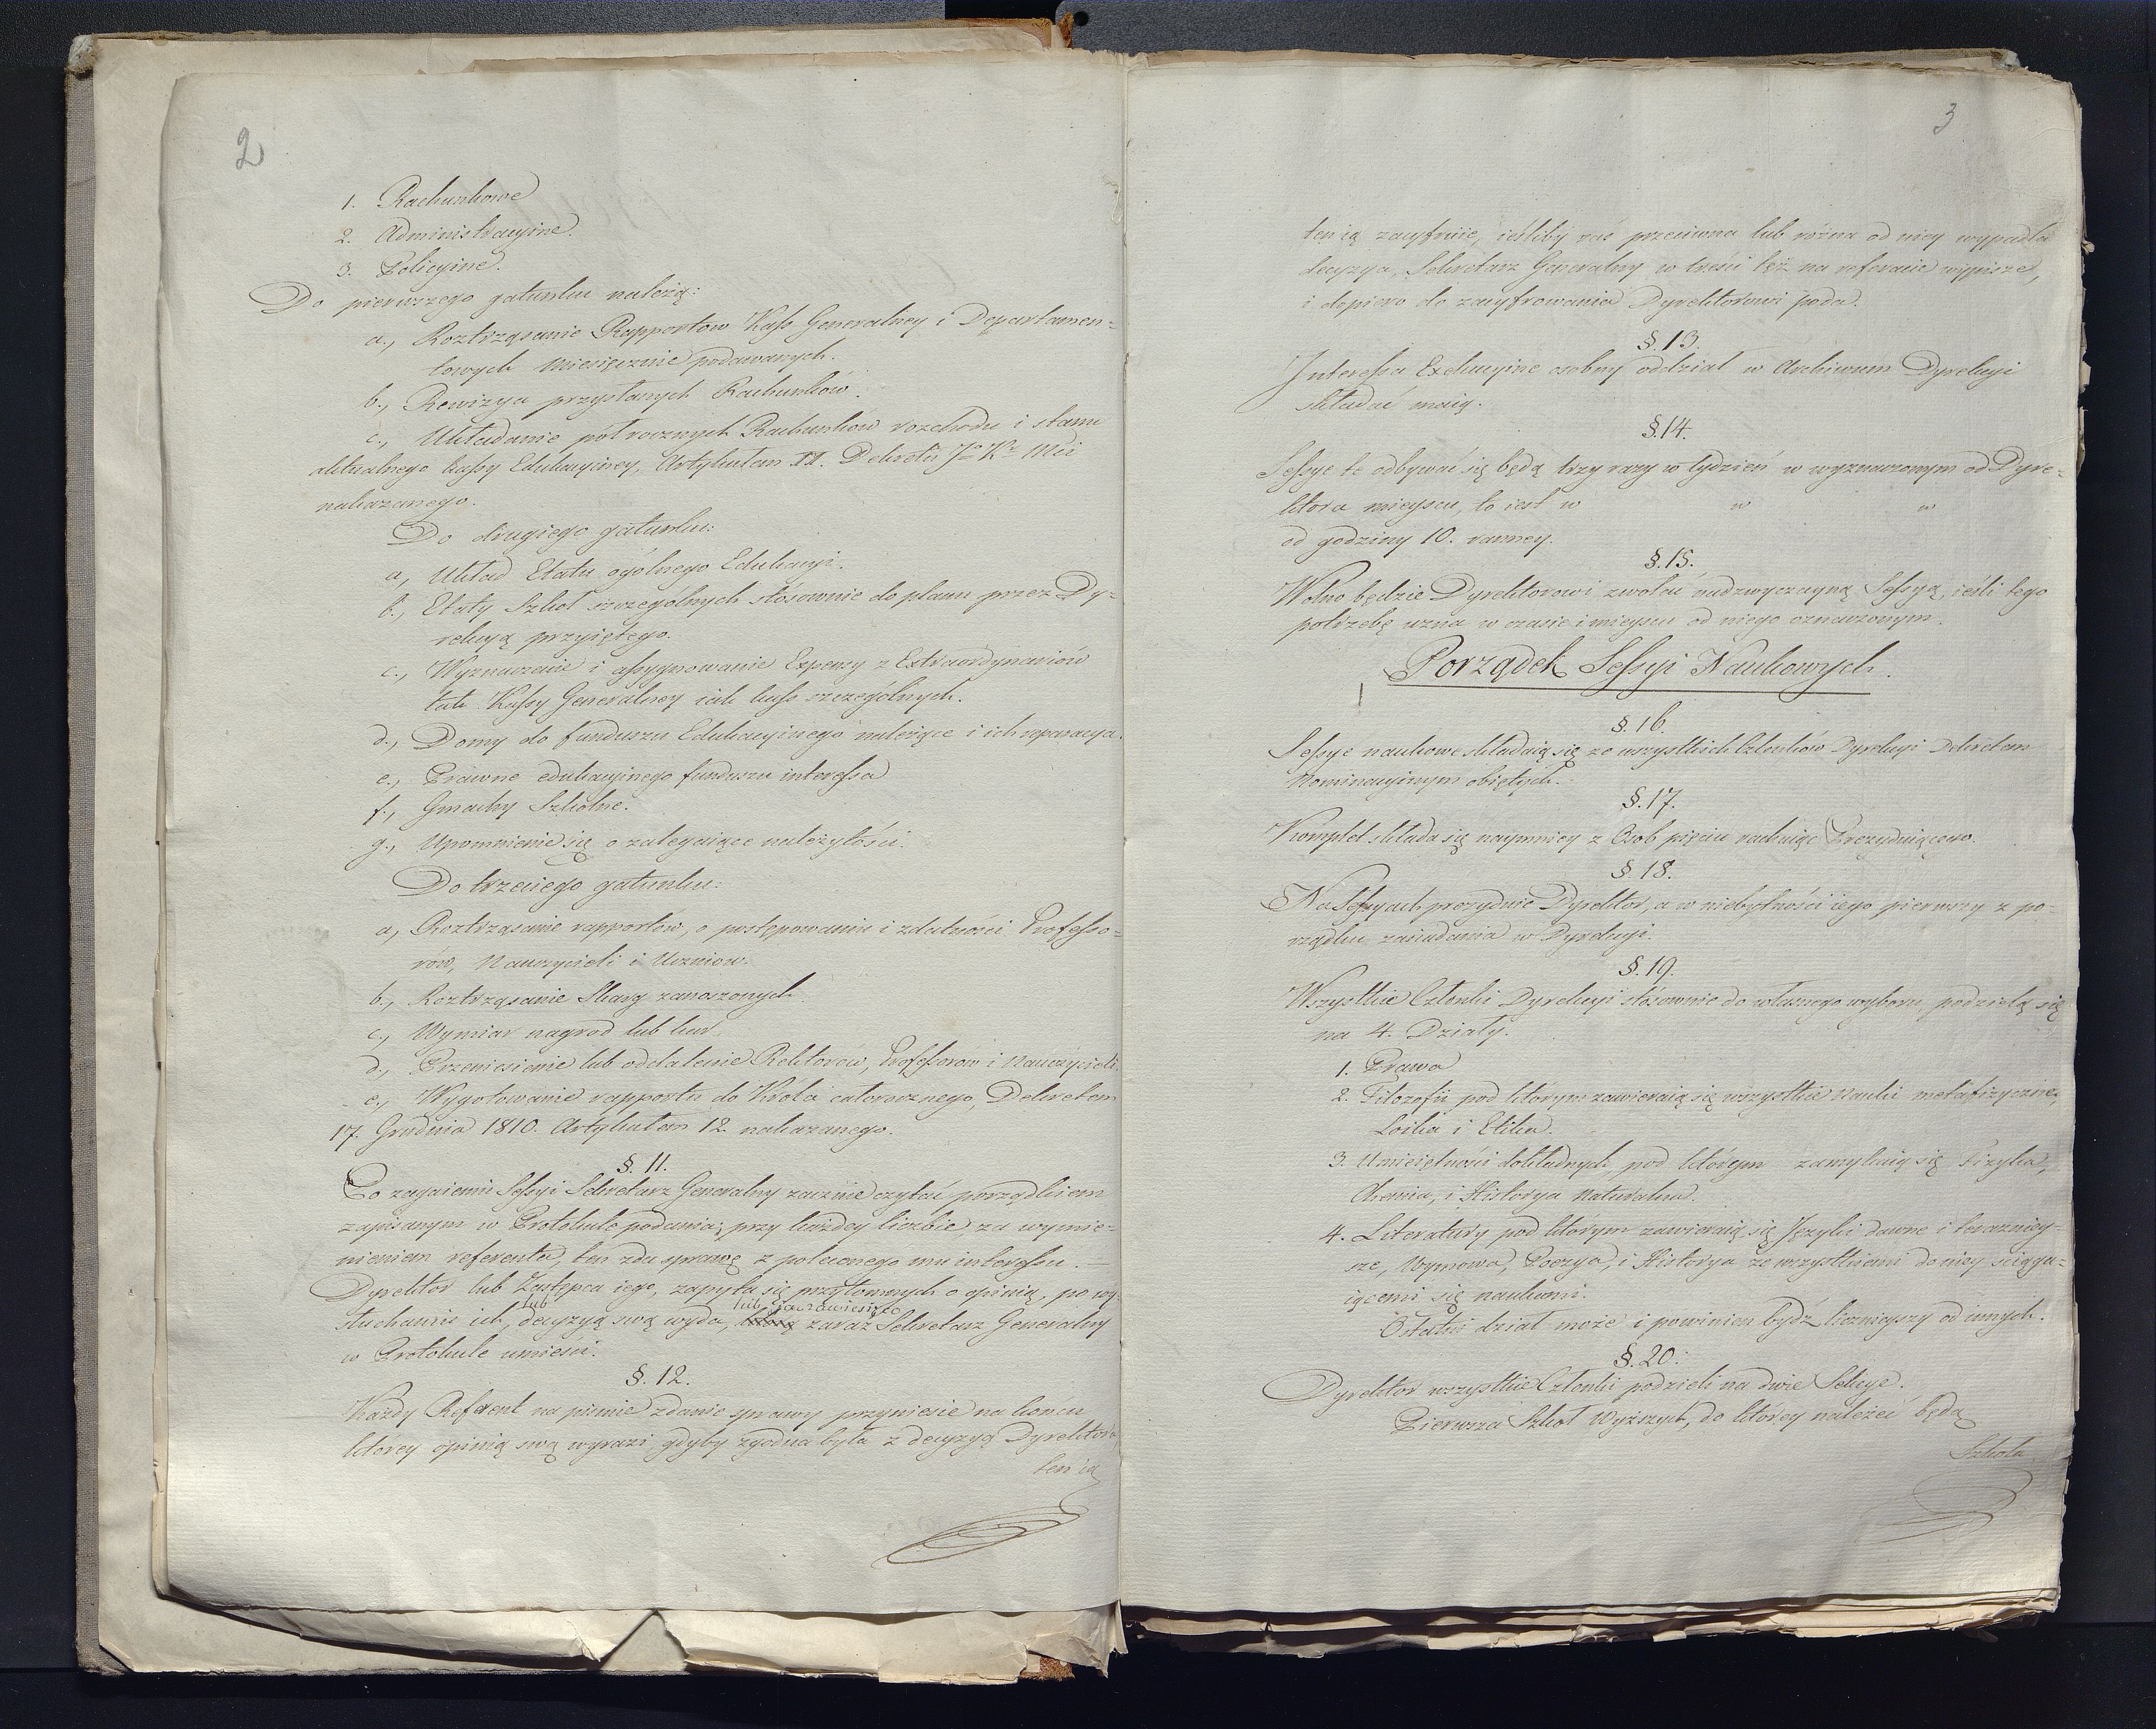 2
1. Rachunkowe
2. Administracyine.
3. Policyine.
Do pierwszego gatunku należą:
a., Roztrząsanie Rapportow Kass Generalney i Departamen=
towych miesięcznie podawanych.
b., Rewizya przysłanych Rachunków.
c., Układanie półrocznych Rachunków rozchodu i stanu
aktualnego kassy Edukacyiney, Artykułem II. Dekretu Jo Kr Mci
nakazanego.
Do drugiego gatunku:
a, Układ Etatu ogólnego Edukacyi.
b., Etaty Szkol szczególnych stósownie do planu przez Dy=
rekcyą przyiętego.
c., Wyznaczenie i assygnowanie Expensy z Extraordynariów
tak Kassy Generalney iak kass szczególnych.
d., Domy do funduszu Edukacyinego należące i ich reparacya.
e., Prawne edukacyinego funduszu interessa
f., Gmachy Szkolne.
g., Upomnienie się o zalegaiące należytości.
Do trzeciego gatunku:
a, Roztrząsanie rapportów, o postępowaniu i zdatności Professo=
rów, Nauczycieli i Uczniow.
b., Roztrząsanie Skarg zanoszonych.
c., Wymiar nagrod lub kar.
d., Przeniesienie lub oddalenie Rektorów, Professorow i Nauczycieli.
e., Wygotowanie rapportu do Króla całorocznego, Dekretem
17. Grudnia 1810. Artykułem 12. nakazanego.
§. 11.
Po zagaieniu Sessyi Sekretarz Generalny zacznie czytać porządkiem
zapisanym w Protokule podania; przy każdey liczbie, za wymie=
nieniem referenta, ten zda sprawę z poleconego mu interessu. —
Dyrektor lub Zastępca iego, zapyta się przytomnych o opinią, po wy
słuchaniu ich, lub decyzyą swą wyda, lub ją zawiesi, zaraz Sekretarz Generalny
w Protokule umieści.
§. 12.
Każdy Referent na pismie zdanie sprawy przyniesie na koncu
ktorey opinią swą wyrazi, gdyby zgodna była z decyzyą Dyrektora
ten ią
3
ten ią zacyfruie, ieśliby zaś przeciwna lub różna od niey wypadła
decyzya, Sekretarz Generalny w treści też na referacie wypisze,
i dopiero do zacyfrowania Dyrektorowi poda.
§. 13.
Interessa Exekucyine osobny oddział w Archiwum Dyrekcyi
składać maią.
§. 14.
Sessye te odbywać się będą trzy razy w tydzień w wyznaczonym od Dyre=
ktora mieyscu, to iest w w w
od godziny 10. ranney.
§. 15.
Wolno będzie Dyrektorowi zwołać nadzwyczayną Sessyą, ieśli tego
potrzebę uzna w czasie i mieyscu od niego oznaczonym.
Porządek Sessyi Naukowych.
§. 16.
Sessye naukowe składaią się ze wszystkich Członków Dyrekcyi Dekretem
Nominacyinym obiętych.
§. 17.
Komplet składa się naymniey z Osob pięciu rachuiąc Prezyduiącego.
§. 18.
Na Sessyach prezyduie Dyrektor, a w niebytności iego pierwszy z po=
rządku zasiadania w Dyrekcyi.
§. 19.
Wszystkie Członki Dyrekcyi stósownie do własnego wyboru, podzielą się
na 4. Działy.
1. Prawa
2. Filozofii pod którym zawieraią się wszystkie Nauki metafizyczne,
Loika i Etika.
3. Umieiętności dokładnych, pod którym zamykaią się Fizyka,
Chemia, i Historya Naturalna.
4. Literatury pod którym zawieraią się Języki dawne i terazniey=
sze, Wymowa, Poezya, i Historya ze wszystkiemi do niey ściąga=
iącemi się naukami.
Ostatni dział może i powinien bydź licznieyszy od innych.
§. 20.
Dyrektor wszystkie Członki podzieli na dwie Sekcye.
Pierwsza Szkoł Wyższych, do którey należeć będą
Szkoła